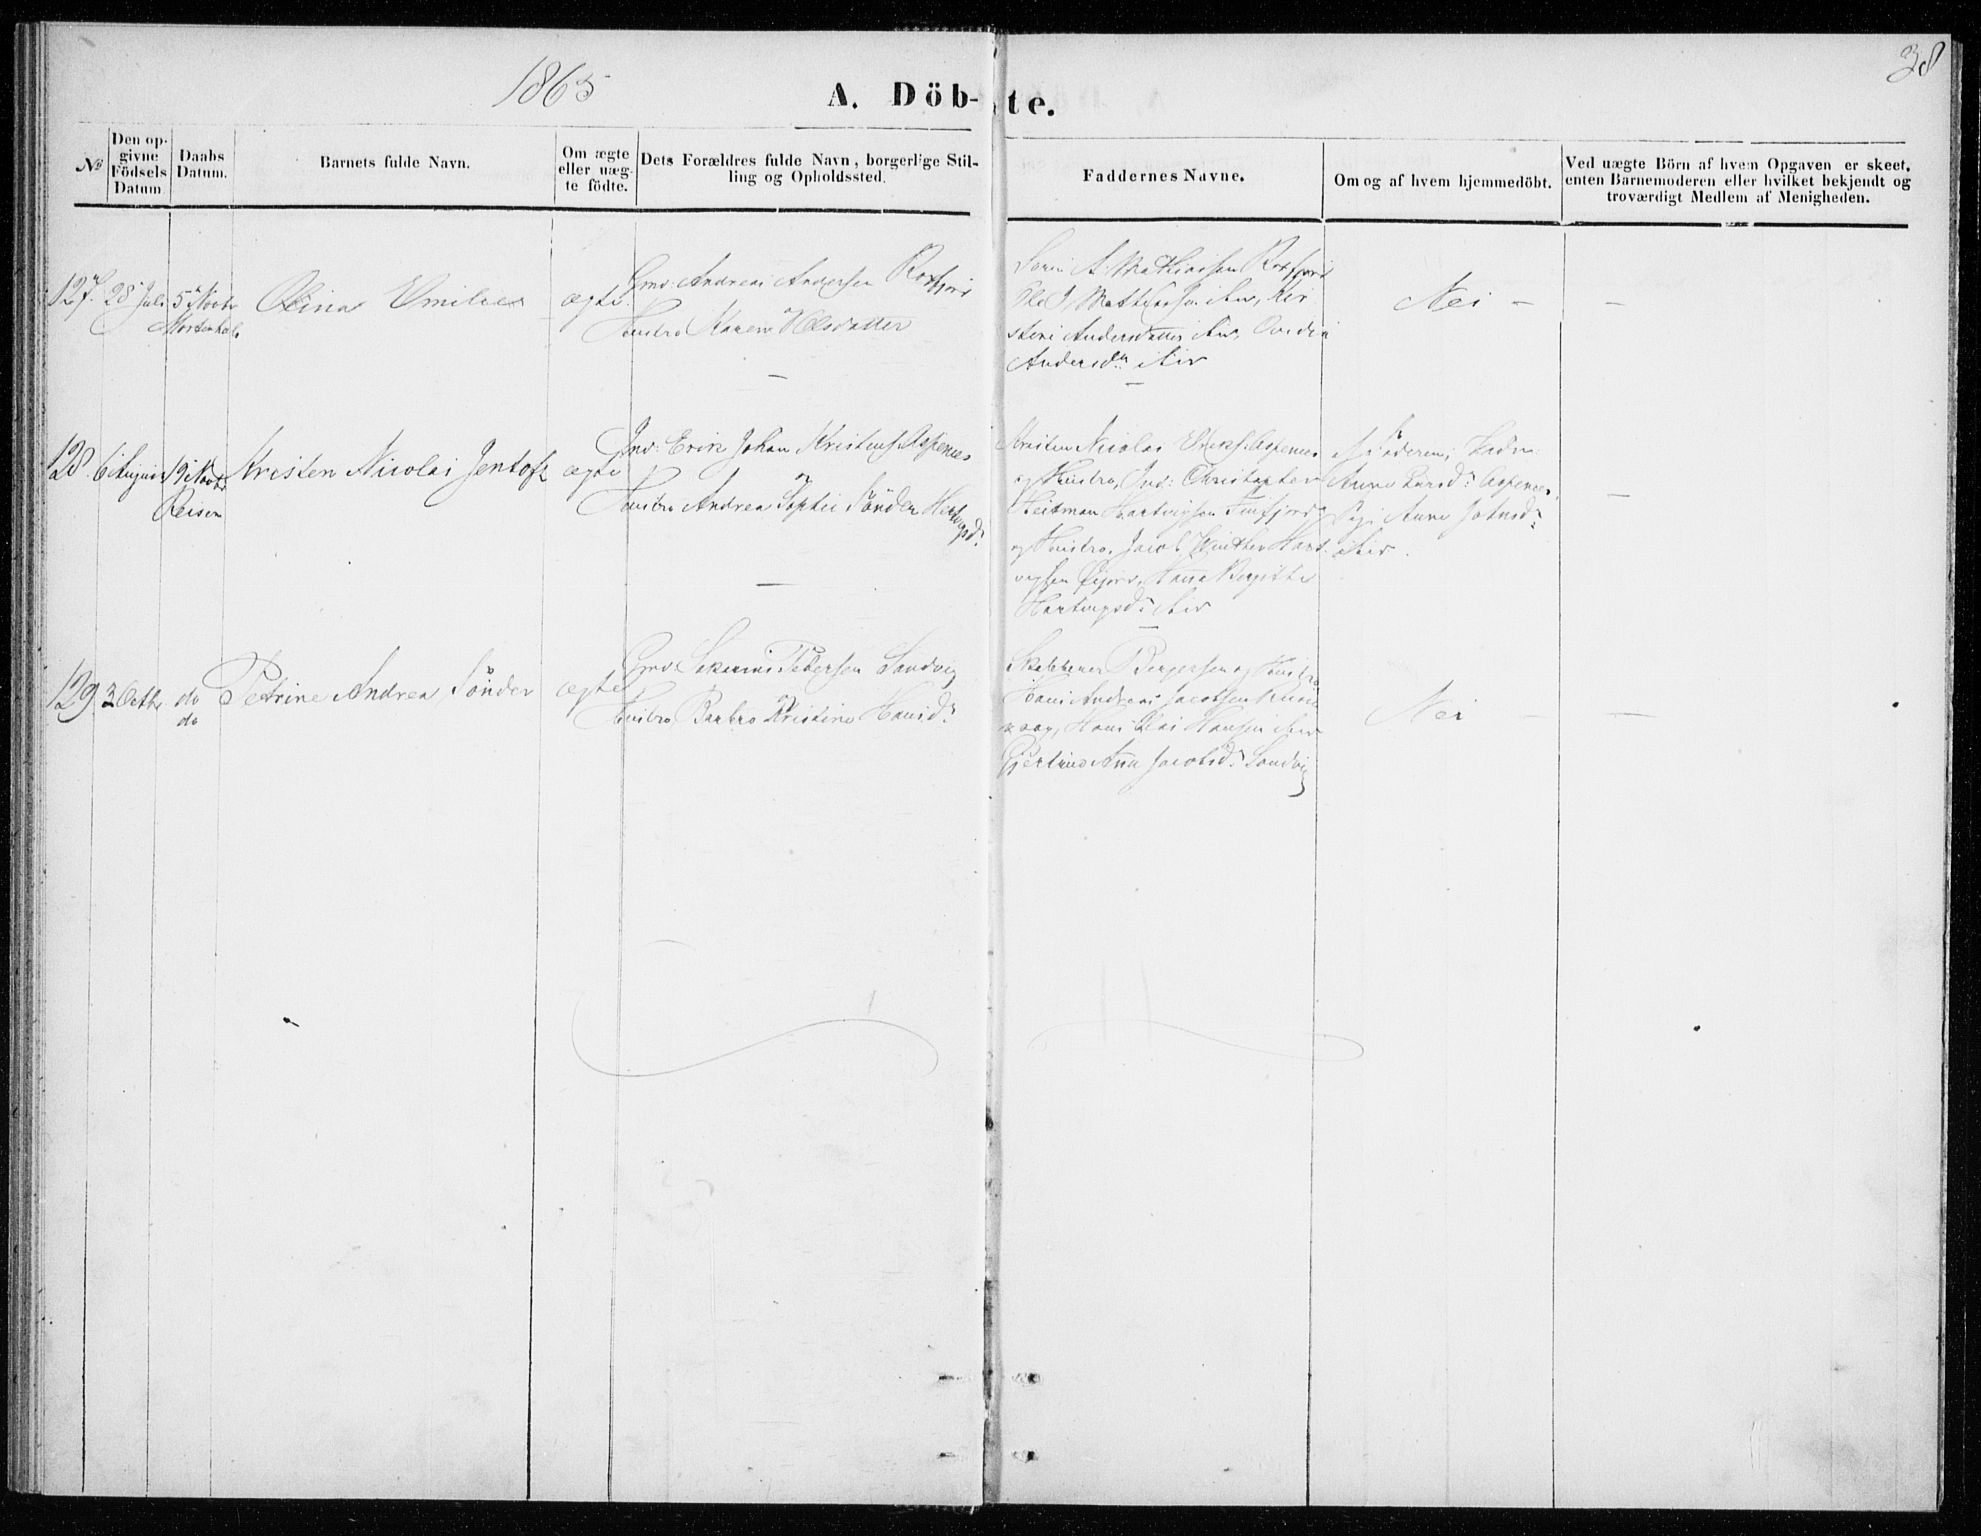 38
1865
A. Döb-te.
No
Den op-
givne
Födsels
Datum
Daabs
Datum.
Barnets fulde Navn.
Om ægte
eller uæg-
te födte.
Dets Forældres fulde Navn, borgerlige Stil-
ling og Opholdssted.
Faddernes Navne.
Om og af hvem hjemmedöbt.
Ved uægte Börn af hvem Opgaven er skeet,
enten Barnemoderen eller hvilket bekjendt og
troværdigt Medlem af Menigheden.
127. 28 Juli 5 Novbr
Mortenhals
Olina Emilie
ægte
Gmd. Andreas Andersen Rossfjord
og
Hustru Maren Olsdatter
—
Mathiasen Rossfjord
Ole J. Mathiasen
Andersdatter
Andersdr
—
Nei —
—
128. 6 August 19 Novbr
Reisen
Kristen Nicolai Jentoft
ægte
Ind: Erik Johan Kristens. Aspenes
og
Hustru Andrea Sophie Sönder Hartvigsdr
—
Kristen Nicolai Eriks. Aspenes
og Hustru, Ind: Christopher
Heitman Hartvigsen Finfjord
og Hustru, Jacob Winther Hart-
vigsen Hanna Bergitte
Hartvigsdr
—
Anne Larsdr Aspenes,
Pige Anne
—
129. 3 Octbr do
do
Petrine Andrea Sönder
ægte
Gmd. Pedersen Sandvig
og
Hustru Barbro Kristine Hansdr
Bergersen og Hustru
Hans Andreas Jacobsen
Hans Hansen
Gjertrud Anna Jacobsdr Sandvig
Nei —
—